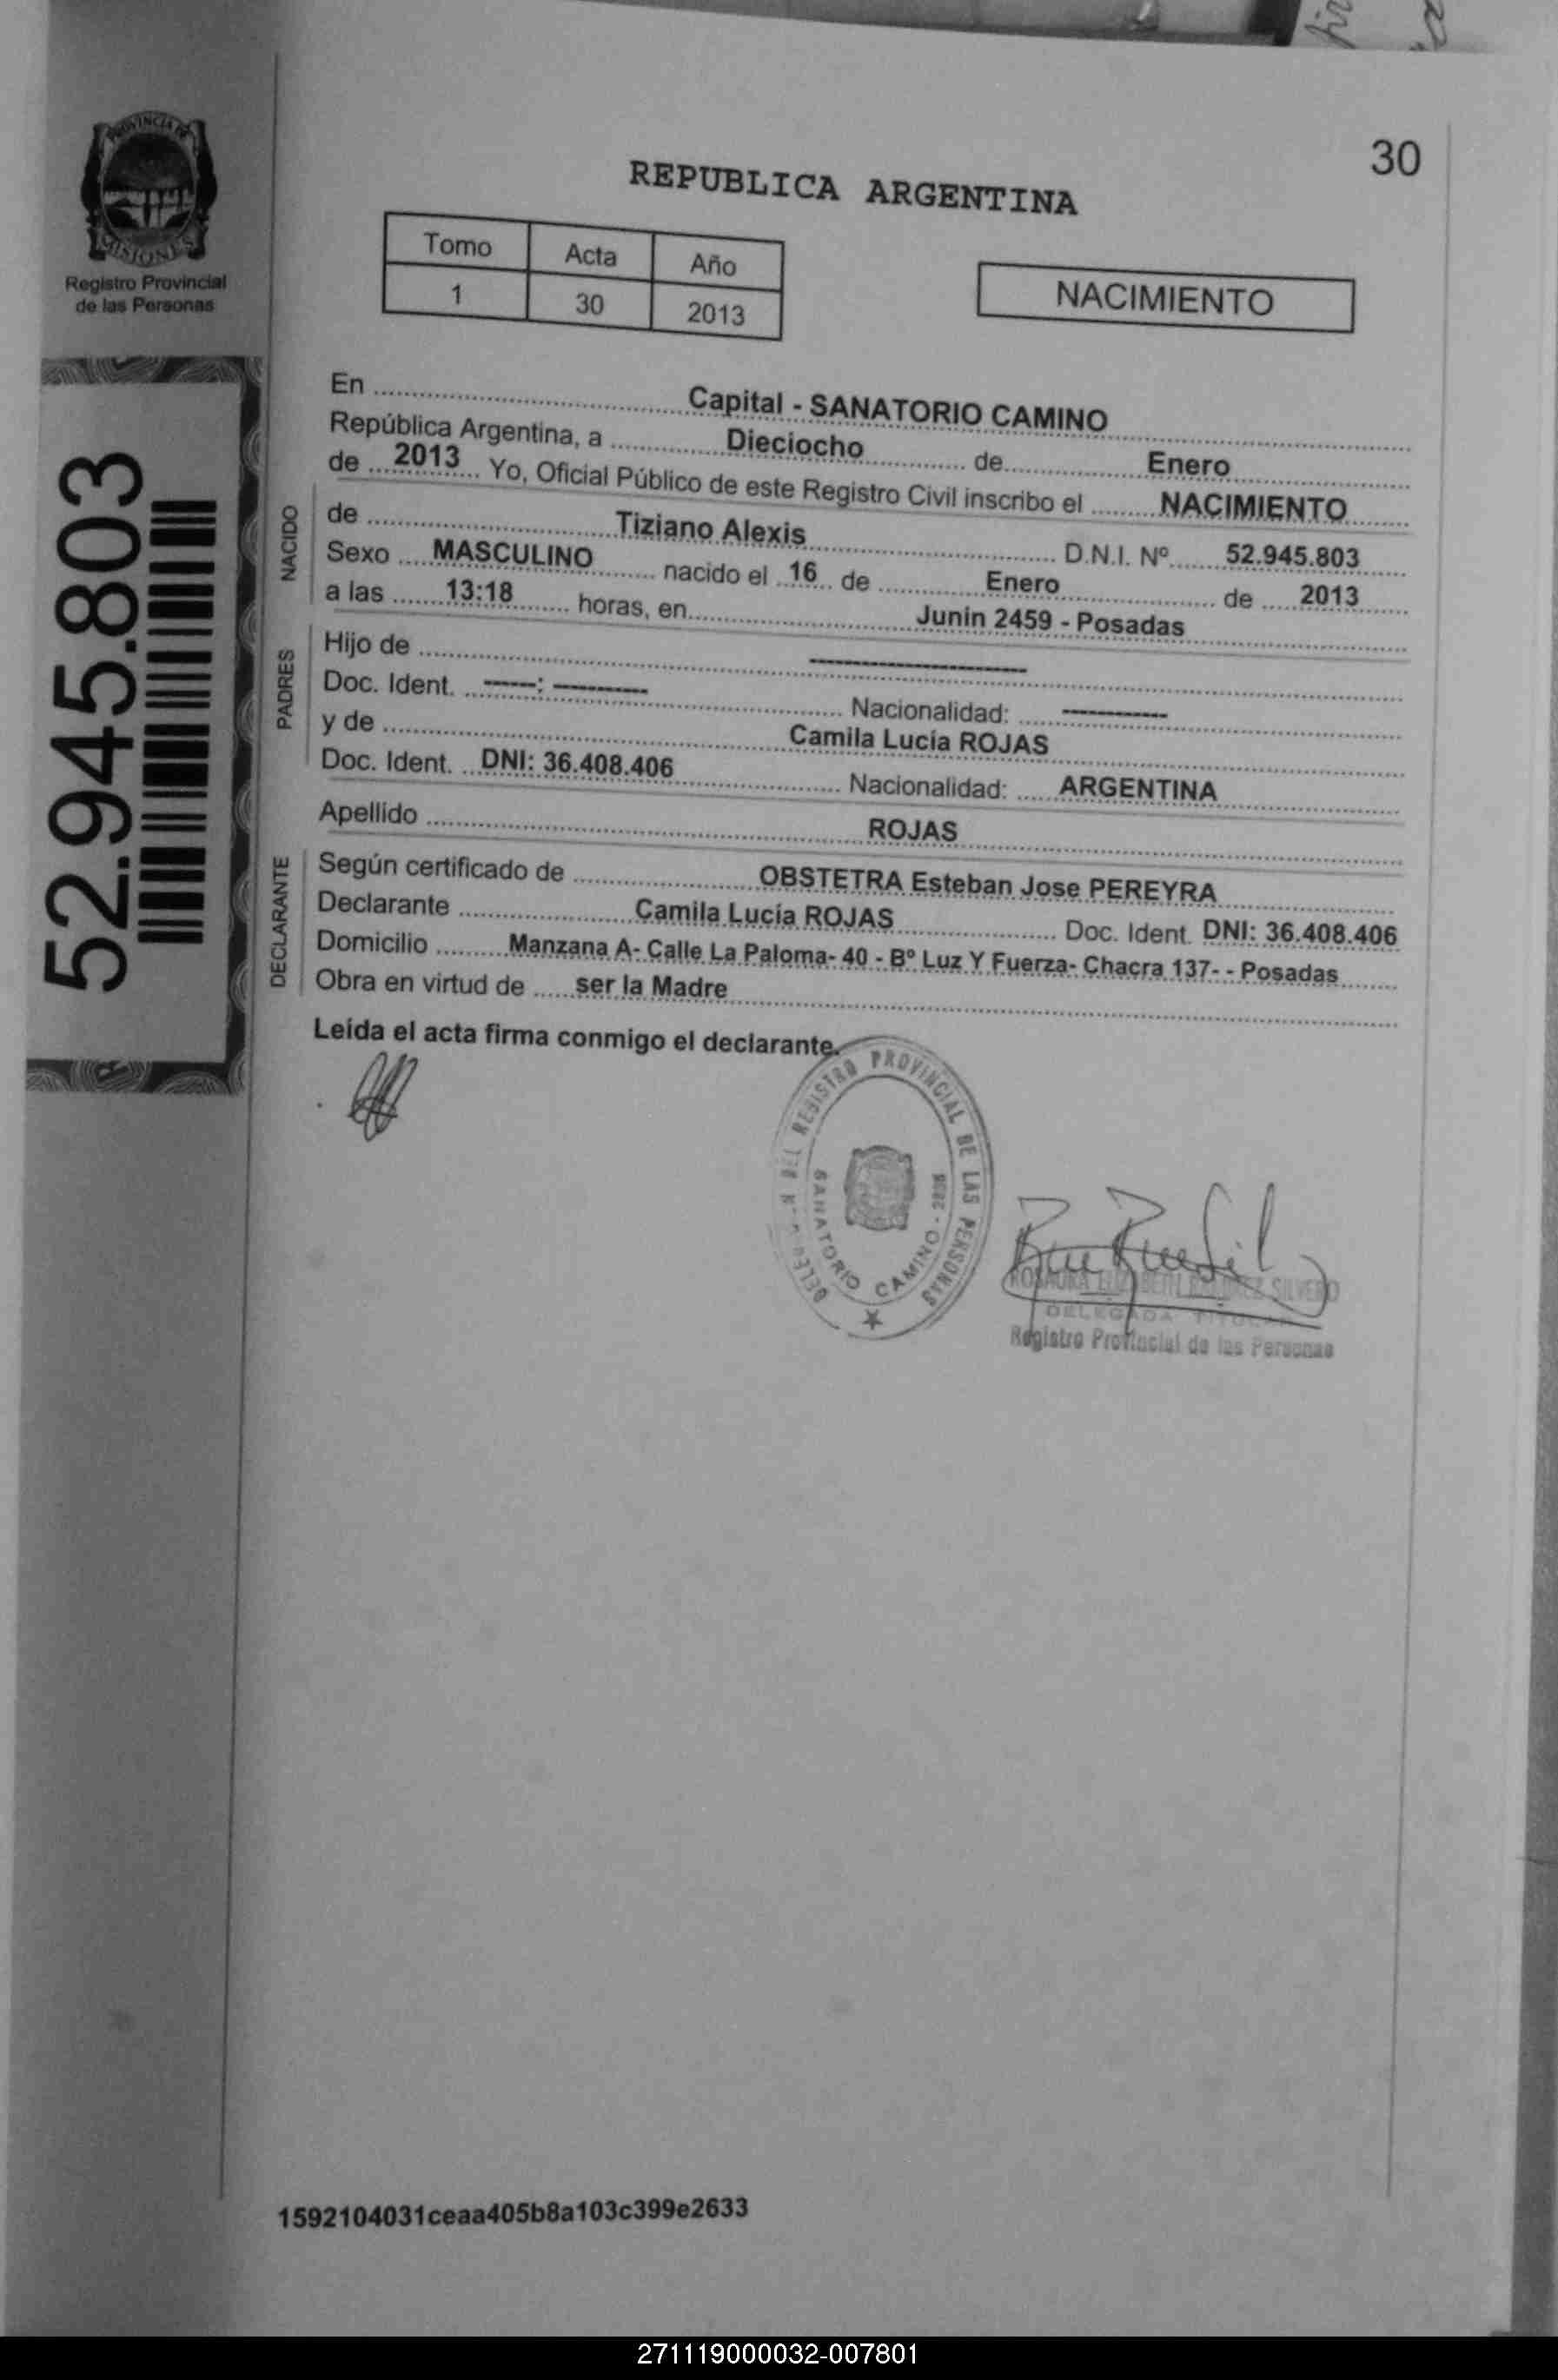 PROVINCIA DE
MISIONES
Registro Provincial
de las Personas
52.945.803
30
REPUBLICA ARGENTINA
Tomo Acta Año
1 30 2013
NACIMIENTO
En Capital - SANATORIO CAMINO
República Argentina, a Dieciocho de Enero
de 2013 Yo, Oficial Público de este Registro Civil inscribo el NACIMIENTO
NACIDO
de Tiziano Alexis D.N.I. Nº 52.945.803
Sexo MASCULINO nacido el 16 de Enero de 2013
a las 13:18 horas, en Junin 2459 - Posadas
PADRES
Hijo de --------------------
Doc. Ident. -----: --------- Nacionalidad: ----------
y de Camila Lucía ROJAS
Doc. Ident. DNI: 36.408.406 Nacionalidad: ARGENTINA
Apellido ROJAS
DECLARANTE
Según certificado de OBSTETRA Esteban Jose PEREYRA
Declarante Camila Lucía ROJAS Doc. Ident. DNI: 36.408.406
Domicilio Manzana A- Calle La Paloma- 40 - Bº Luz Y Fuerza- Chacra 137- - Posadas
Obra en virtud de ser la Madre
Leída el acta firma conmigo el declarante.
DEL REGISTRO PROVINCIAL DE LAS PERSONAS
SANATORIO CAMINO
SILVERO
DELEGADA TITULAR
Registro Provincial de las Personas
1592104031ceaa405b8a103c399e2633
271119000032-007801